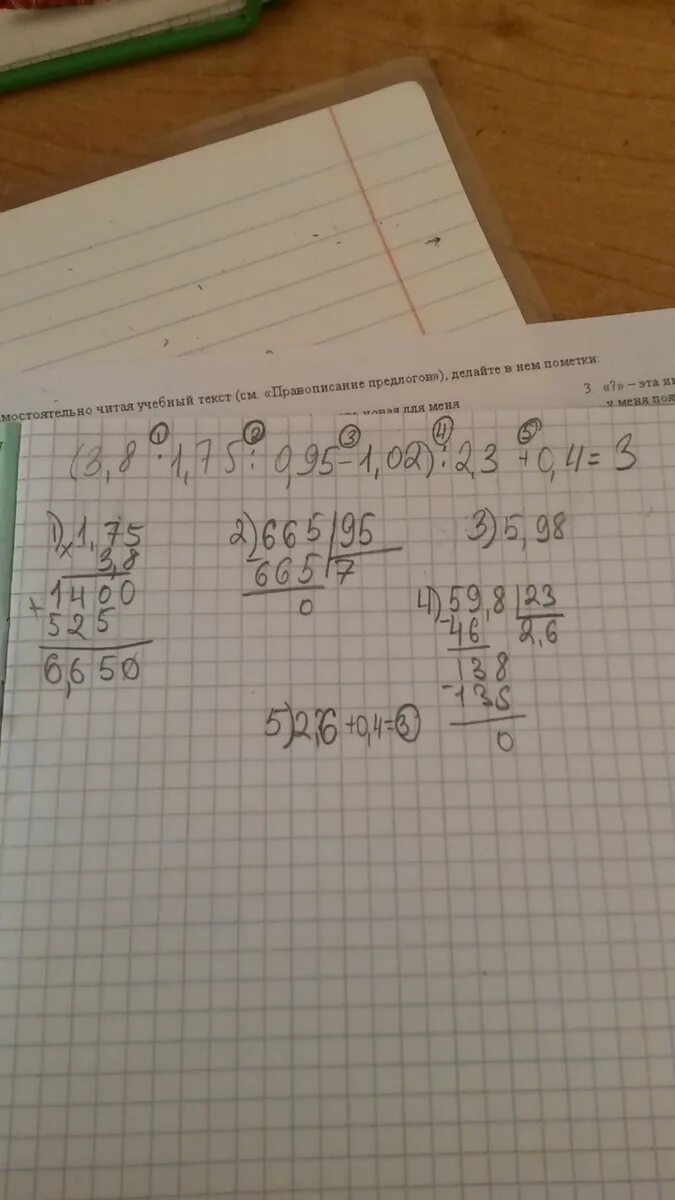 мостоятельно читая учебный текст (см. «Правописание предлогов»), делайте в нем пометки:
3. «?» – эта
новая для меня
у меня
① ② ③ ④ ⑤
(3,8 · 1,75 : 0,95 - 1,02) : 2,3 + 0,4 = 3
1) 1,75
× 3,8
+ 1400
525
6,650
2) 665 | 95
- 665 | 7
0
3) 5,98
4) 59,8 | 23
- 46 | 2,6
138
- 138
0
5) 2,6 + 0,4 = 3